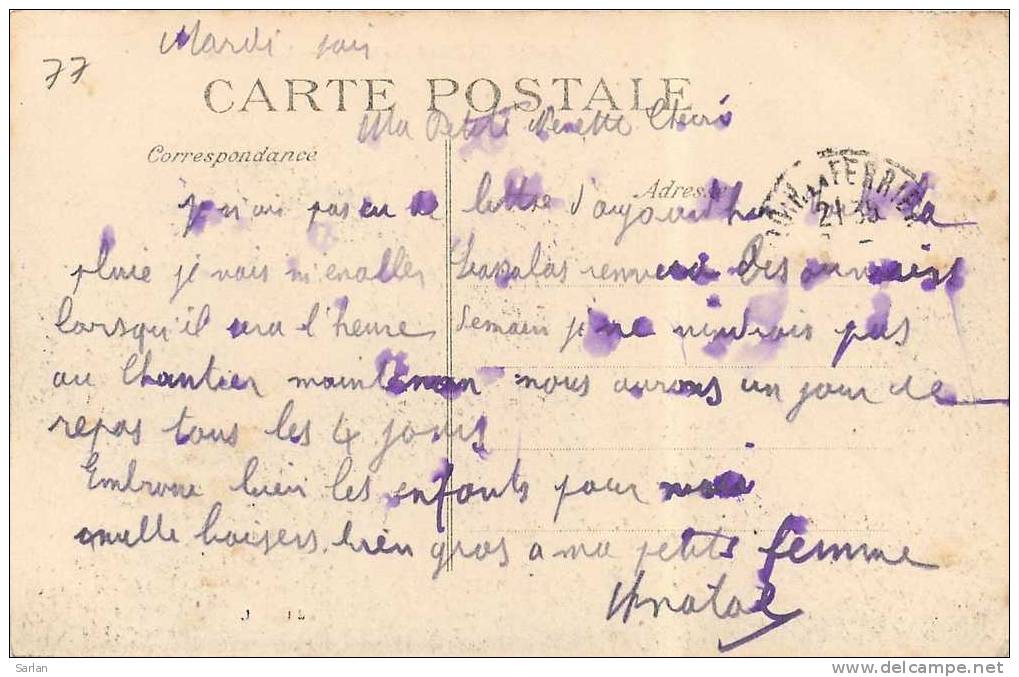 Mardi soir
77
CARTE POSTALE
Ma Petite Nenette Cheri
Correspondance
Adresse
FERRIÈ
21 35
je n'ai pas eu de lettre d'aujourd'hui la
pluie je vais m'en aller
lorsqu'il sera l'heure demain je ne viendrais pas
au Chantier maintenan nous aurons un jour de
repos tous les 4 jours
Embrasse bien les enfants pour moi
mille baisers bien gros a ma petite femme
Sarlan
www.delcampe.net